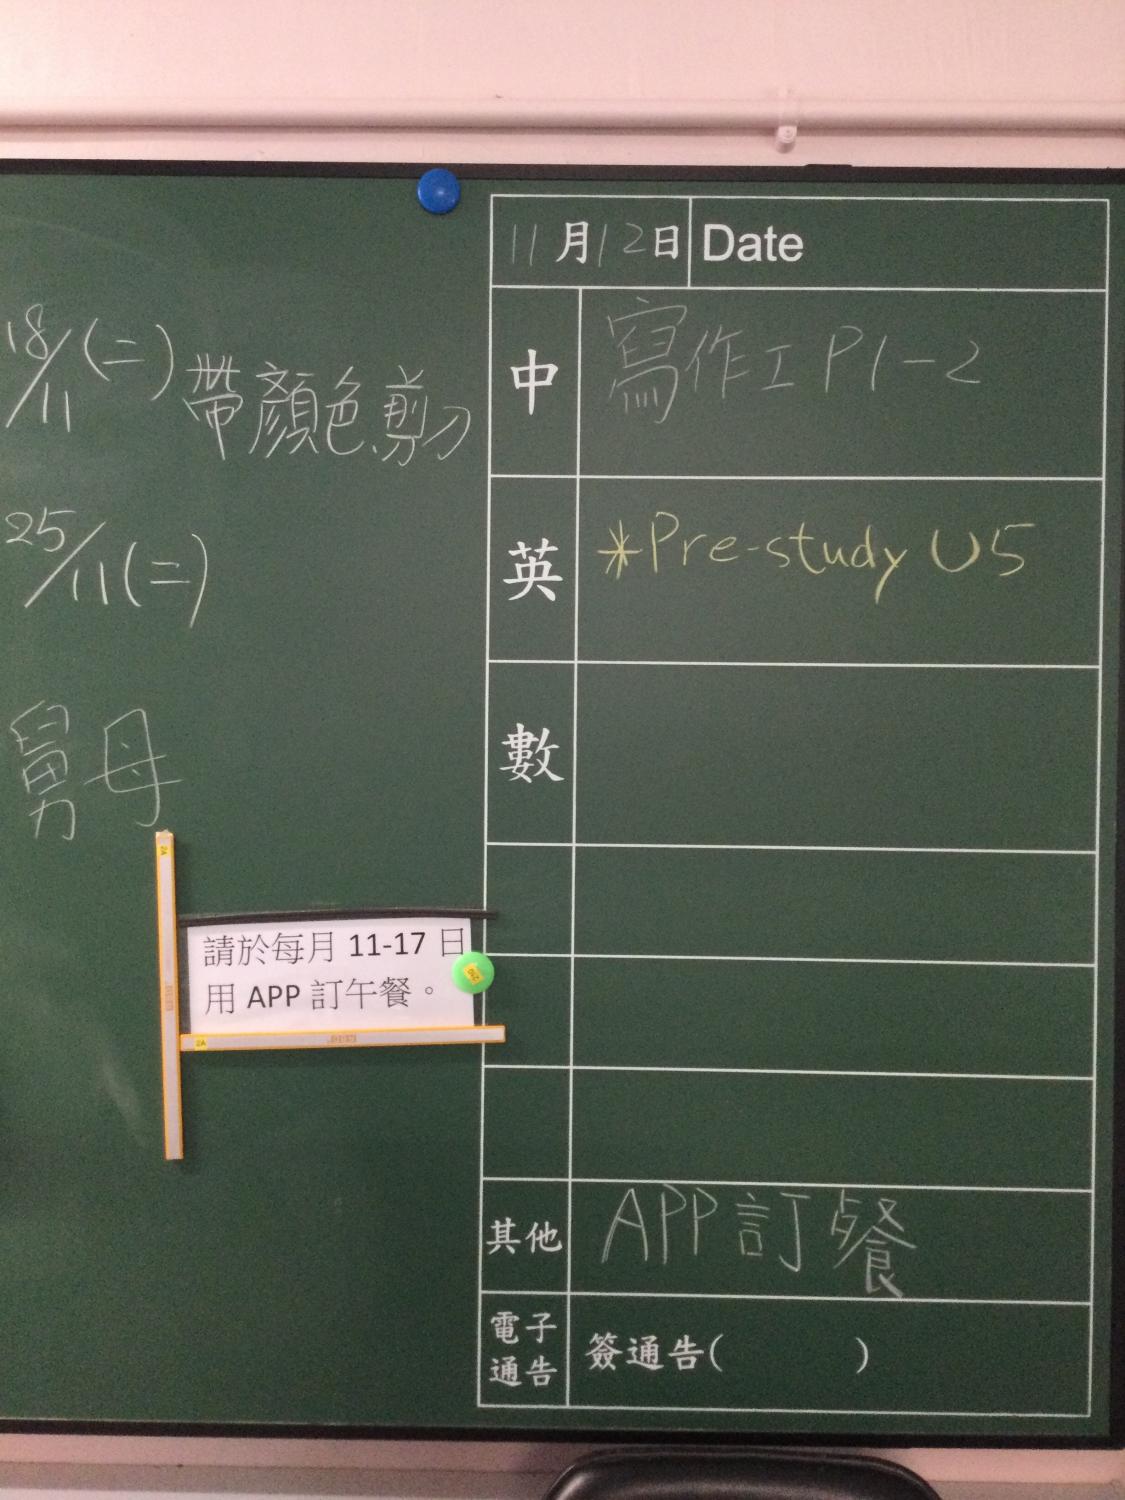 18/11(二)帶顏色剪刀
25/11(二)
舅母
請於每月 11-17 日
用 APP 訂午餐。
11月12日 Date
中 寫作工 P1-2
英 *Pre-study U5
數
其他 APP訂餐
電子通告 簽通告( )
2A
2A